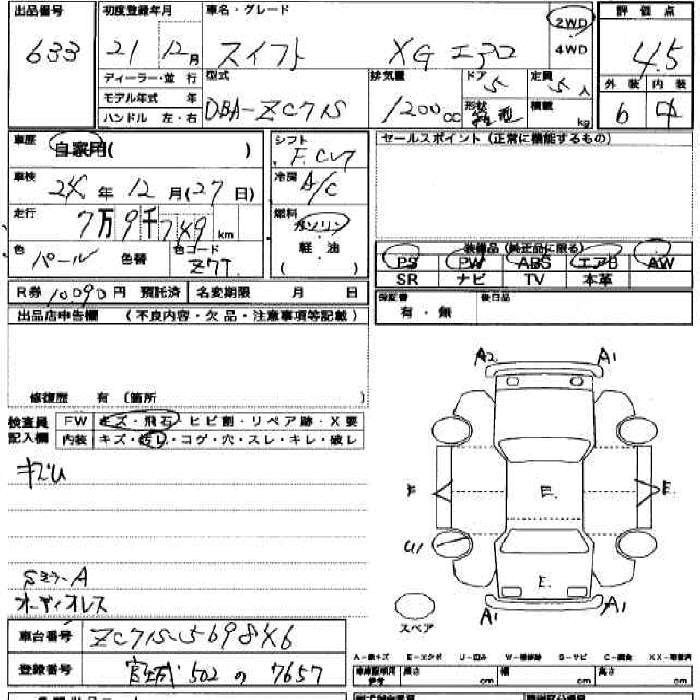 出品番号 初度登録年月 車名・グレード 2WD 評価点
633 21 12月 スイフト XG エアロ 4WD 4.5
ディーラー・並行 型式 排気量 ドア 定員 外装 内装
モデル年式 年 DBA-ZC71S 1200CC 5 5人 6 中
ハンドル 左・右 形状 積載 kg
車歴 自家用( ) シフト F.CVT セールスポイント(正常に機能するもの)
車検 24年12月(27日) 冷房 A/C
走行 7万9千749km 燃料 ガソリン
軽・油
( )
色 パール 色替 色コード Z7T 装備品(純正品に限る)
PS PW ABS エアB AW
SR ナビ TV 本革
R券 10090円 預託済 名変期限 月 日 保証書 後日品
有・無
出品店申告欄 (不良内容・欠品・注意事項等記載)
修復歴 有 (箇所 )
検査員記入欄 FW キズ・飛石・ヒビ割・リペア跡・X要
内装 キズ・汚レ・コゲ・穴・スレ・キレ・破レ
A2 A1
キズU
E E
U1
E
Sミラ-A
オーディオレス
A1 A1
スペア
車台番号
登録番号 宮城 502 の 7657
A-線キズ E-エクボ U-凹み W-補修跡 S-サビ C-腐食 XX-交換済
長さ cm 幅 cm 高さ cm